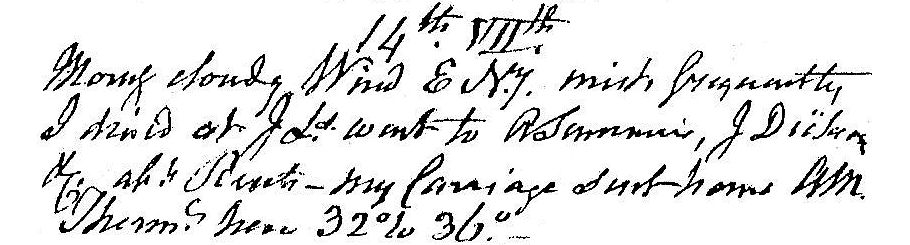 14th. VIIth.
Morng cloudy Wind E Ny. mist frequently
I dined at J Ld. went to R Summers, J Dickson
&c. abt. Rent - my Carriage sent home AM.
Therms. here 32° to 36°. -